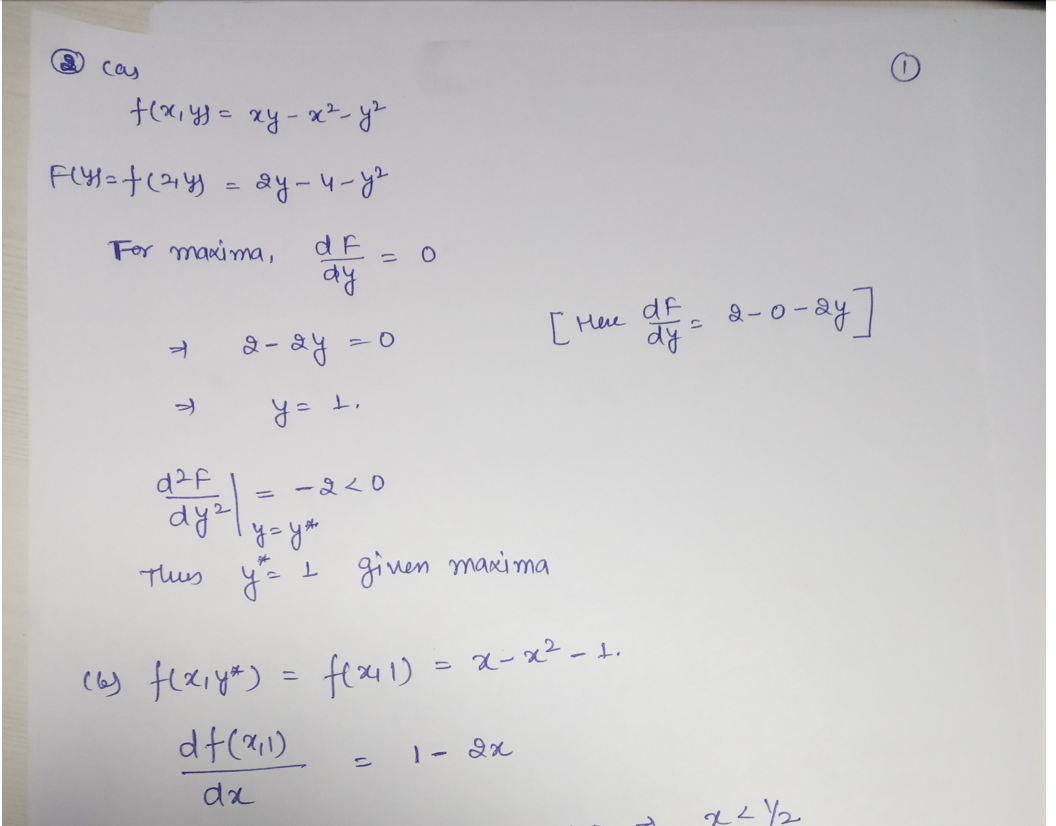 ② (a) ①
f(x,y) = xy - x² - y²
F(y) = f(2,y) = 2y - 4 - y²
For maxima, dF/dy = 0
⇒ 2 - 2y = 0 [Here dF/dy = 2-0-2y]
⇒ y = 1.
d²F/dy² |y=y* = -2 < 0
Thus y* = 1 given maxima
(b) f(x,y*) = f(x,1) = x - x² - 1.
df(x,1)/dx = 1 - 2x
x < 1/2